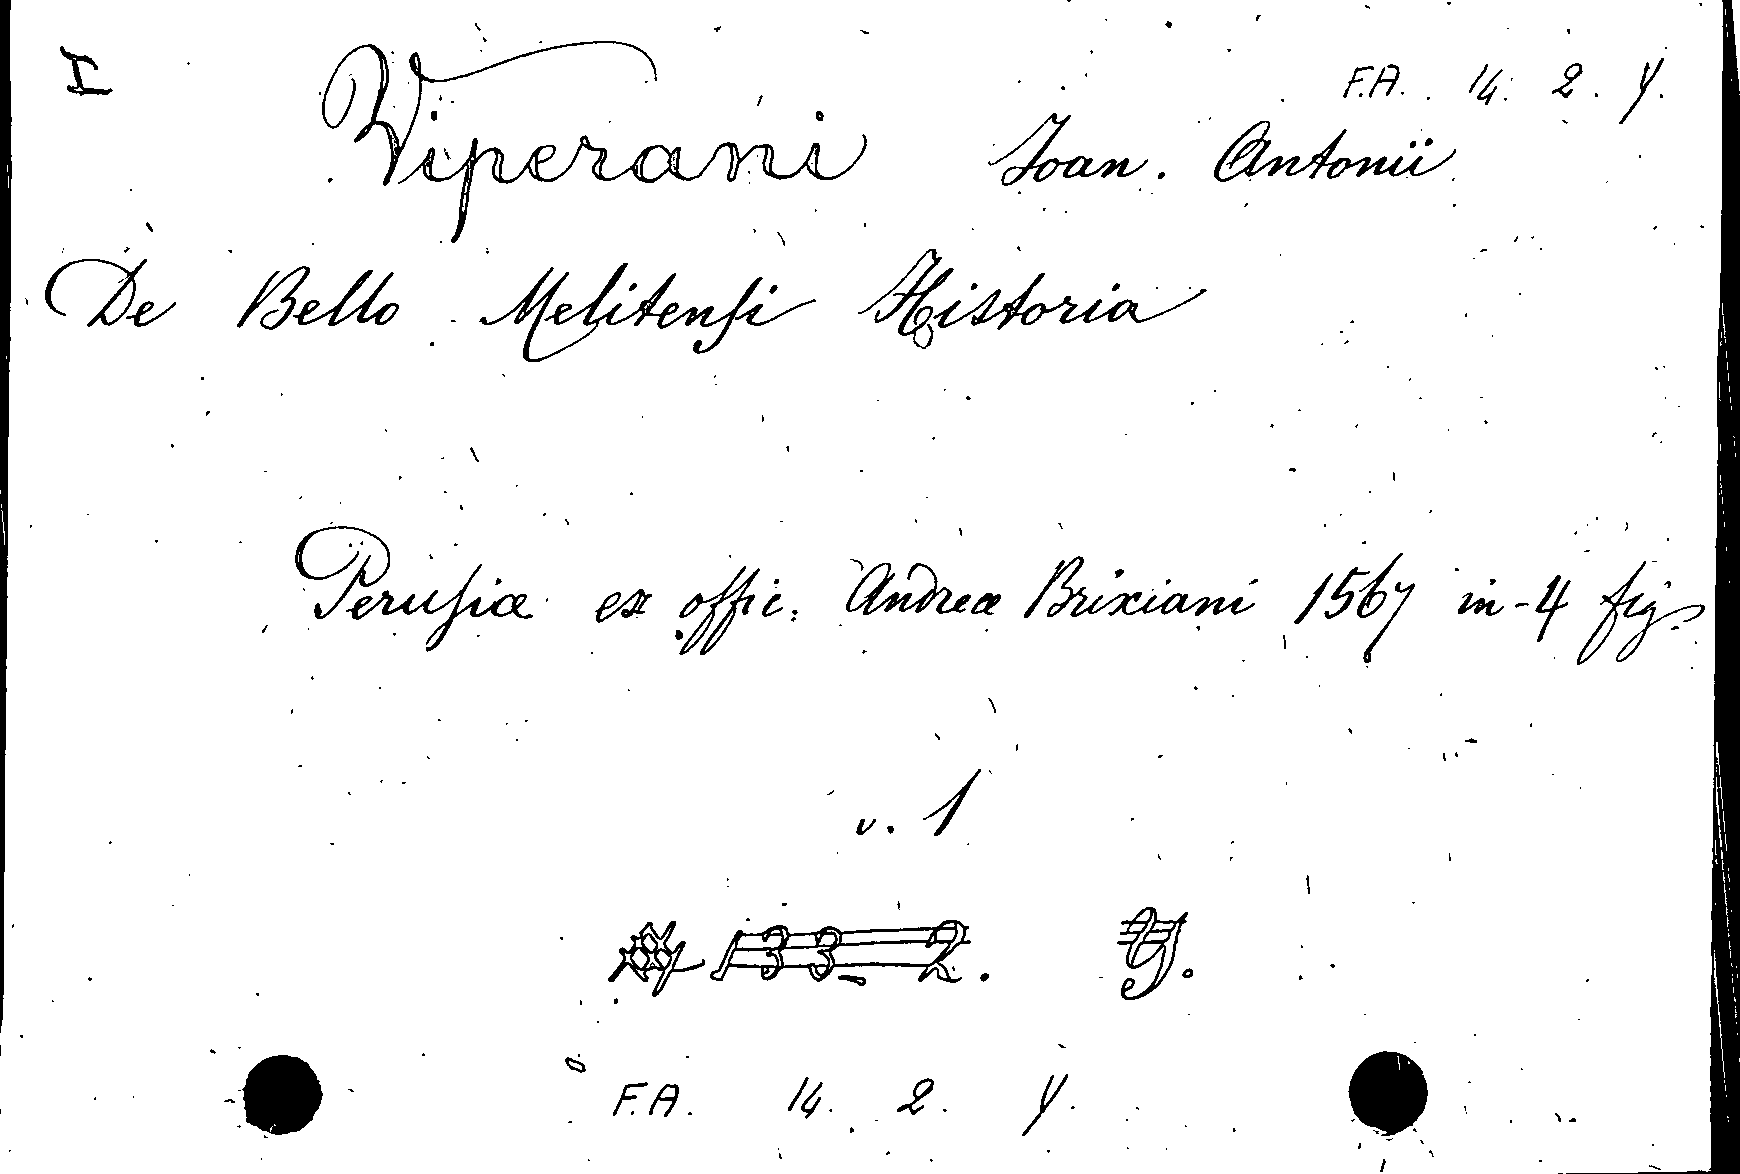 I
F.A. 14. 2. Y.
Viperani Joan. Antonii
De Bello Melitensi Historia
Perusiæ ex offic. Andreæ Brixiani 1567 in-4 fig.
v. 1
133-2. Y.
F.A. 14. 2. Y.